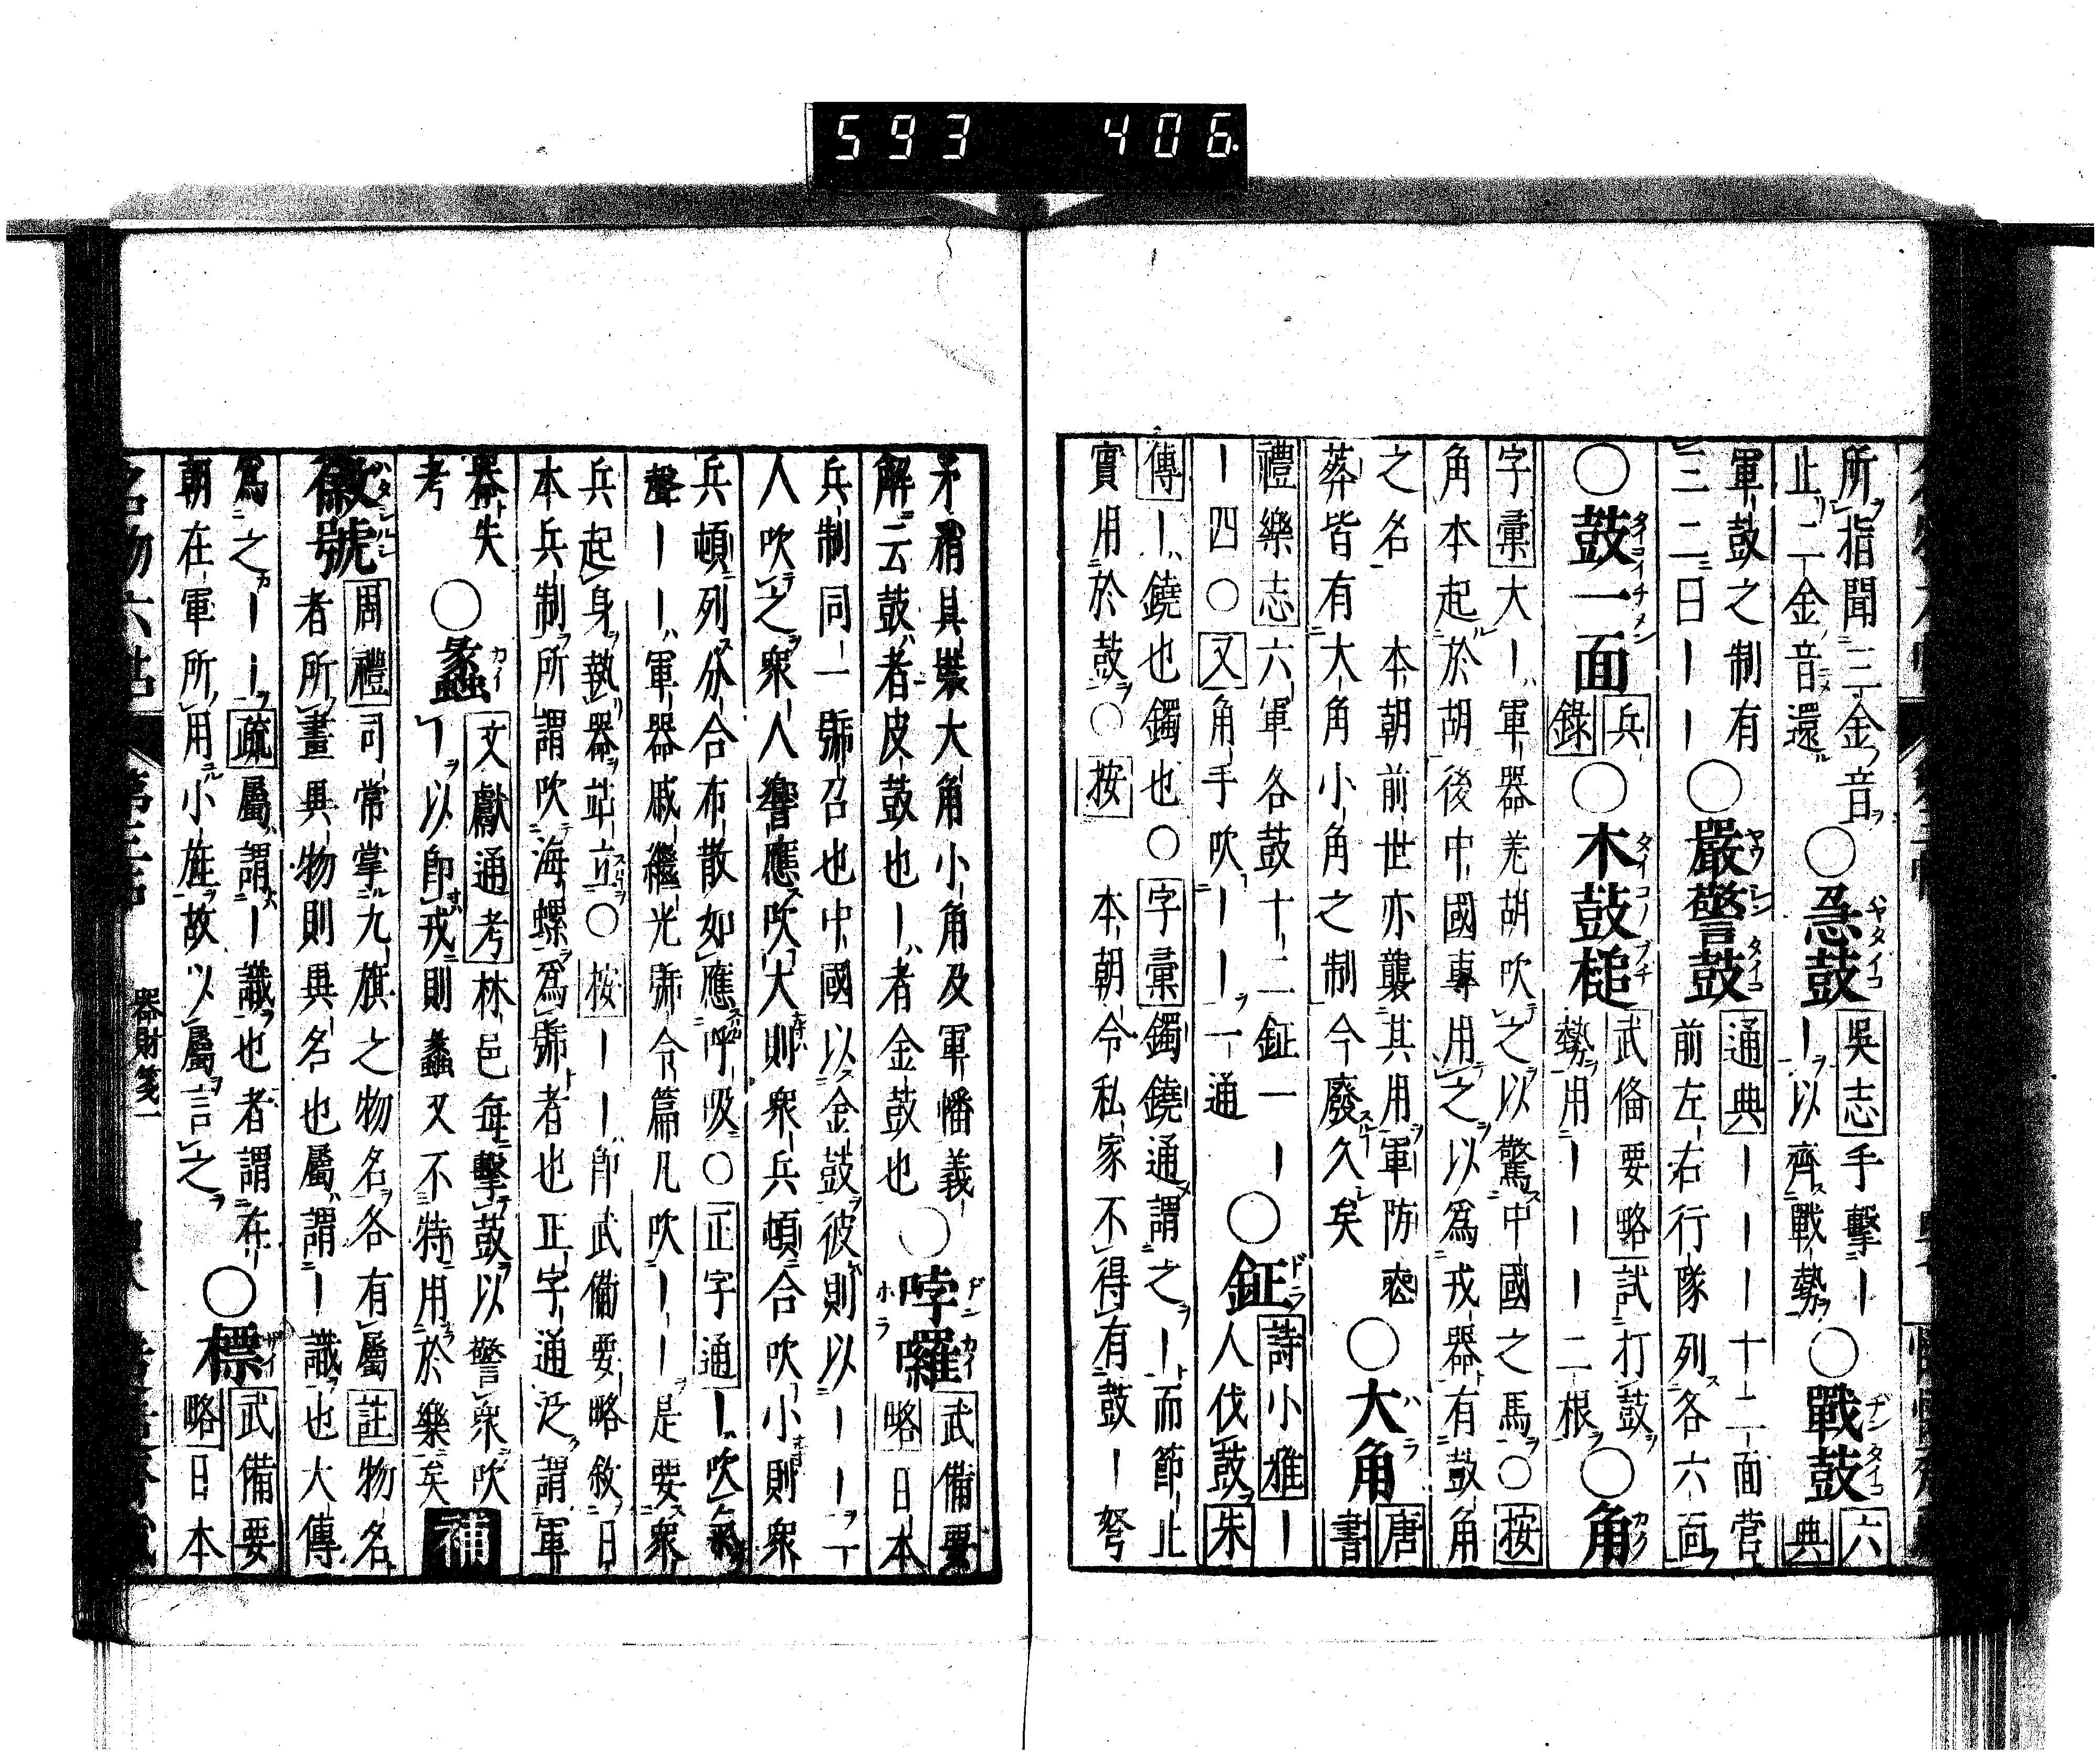 593 406.
所指聞三金音
止二金音還
○急鼓
吳志手擊ー
ー以齊戰勢
○戰鼓
六
典
軍鼓之制有
三二曰ーー
○嚴警鼓
通典ーーー十二面營
前左右行隊列各六面
○鼓一面
兵
錄
○木鼓槌
武俻要略試打鼓
勢用ーーー二根
○角
字彙大ー軍器羌胡吹之以驚中國之馬○按
角本起於胡後中國專用之以爲戎器有鼓角
之名 本朝前世亦襲其用軍防
葬皆有大角小角之制今廢久矣
○大角
唐
書
禮樂志六軍各鼓十二鉦一ー
ー四○又角手吹ーーー一通
○鉦
詩小雅ー
人伐鼓朱
傳ー鐃也鐲也○字彙鐲鐃通謂之ー而節止
實用於鼓○按 本朝令私家不得有鼓ー弩
矛矟具裝大角小角及軍幡義
解云鼓者皮鼓也ー者金鼓也
○哱囉
武備要
略日本
兵制同一號召也中國以金鼓彼則以ーー一
人吹之衆人響應吹大則衆兵頓合吹小則衆
兵頓列分合布散如應呼吸○正字通ー吹
聲ーー軍器戚繼光號令篇凡吹ーー是要衆
兵起身執器站立○按ーー卽武備要略敘日
本兵制所謂吹海螺爲號者也正字通乃謂軍
器失
考
○蠡
文獻通考林邑每擊鼓以警衆吹
ー以卽戎則蠡又不特用於樂矣
補
徽號
周禮司常掌九旗之物名各有屬註物名
者所畫異物則異名也屬謂ー識也大傳
爲之ーー疏屬謂ー識也者謂在
朝在軍所用小旌故以屬言之
○標
武備要
略日本
器財箋一